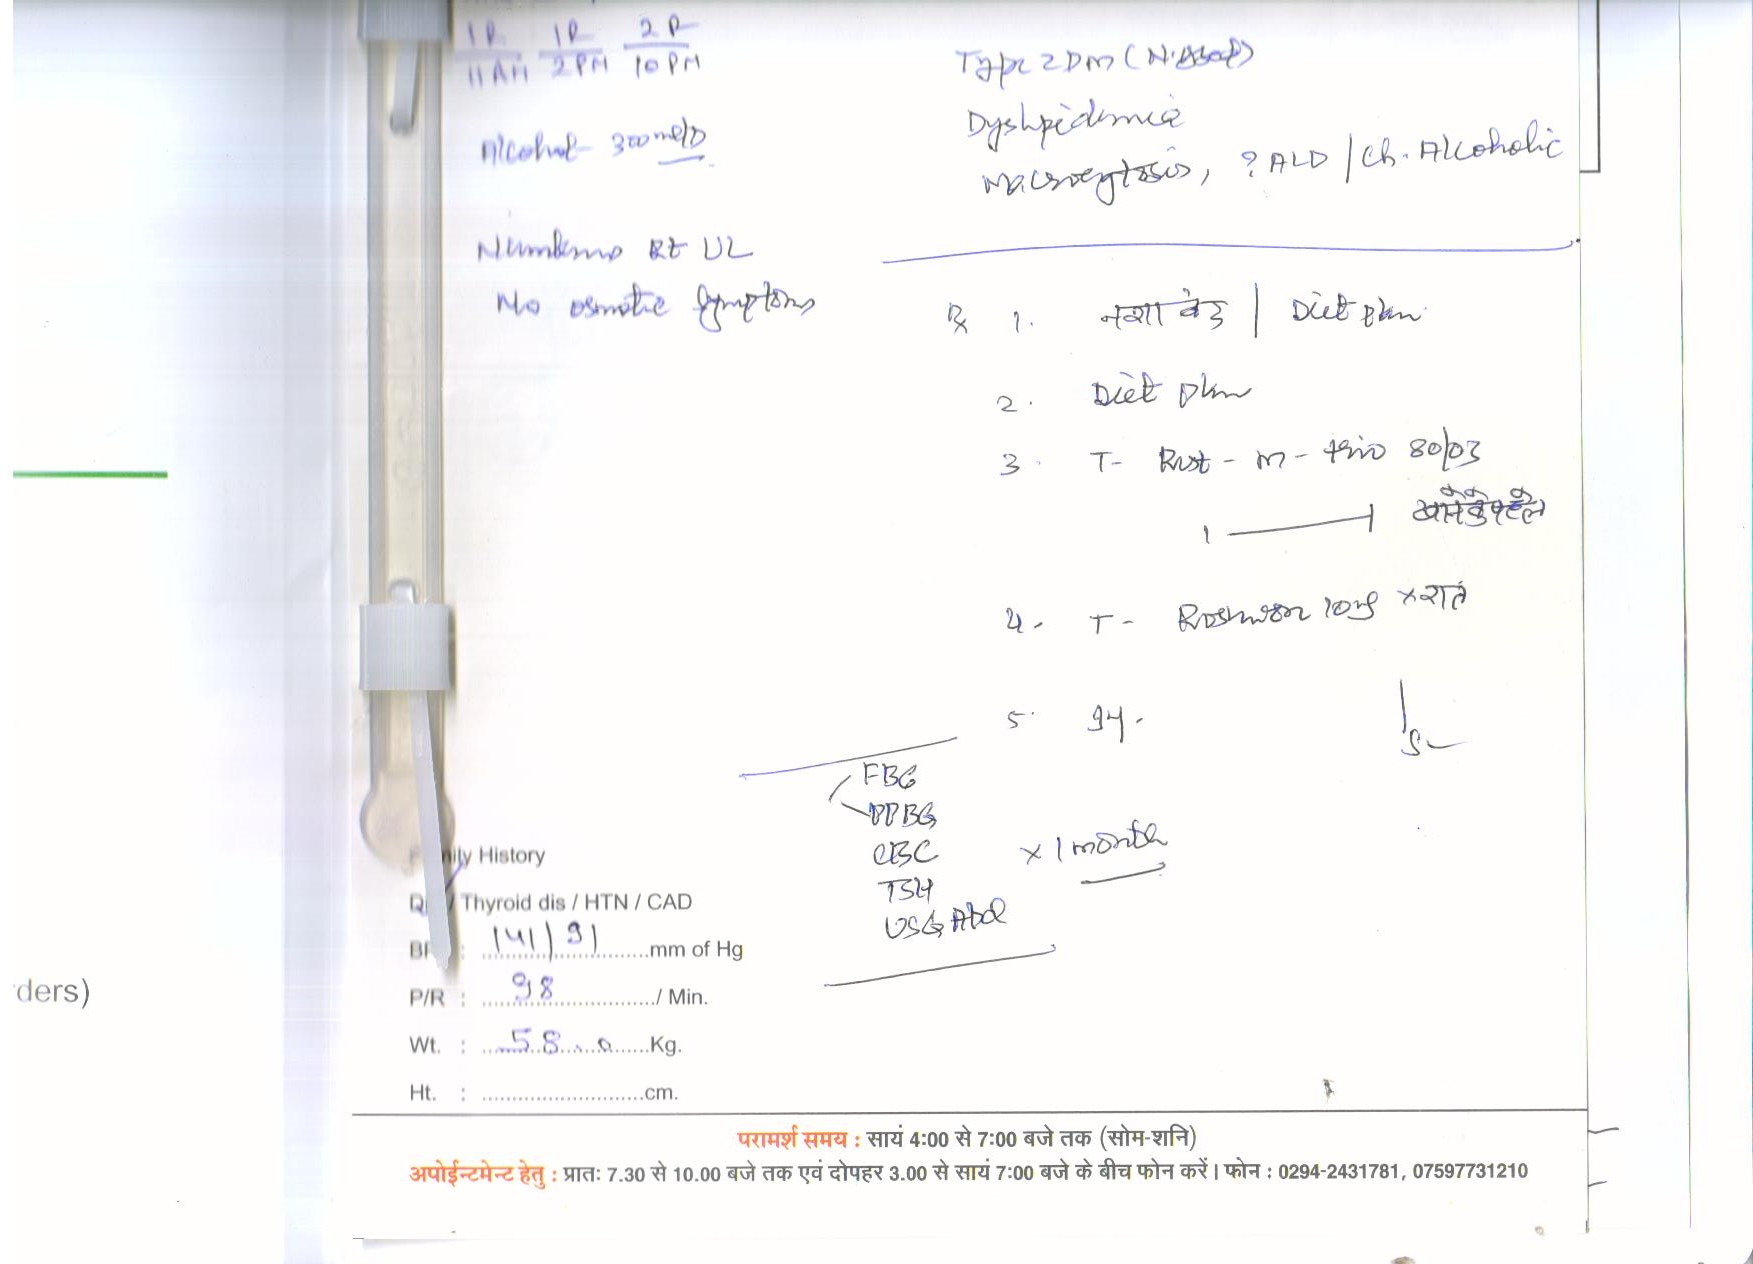 1R 1R 2R
11AM 2PM 10PM
Alcohol - 300 ml/D
Numbness Rt UL
No osmotic symptoms
Type 2 DM
Dyslipidemia
Macrocytosis, ? ALD / Ch. Alcoholic
Rx 1. नशा बंद | Diet plan
2. Diet plan
3. T-
1 — 1
4. T- 10mg x रात
5.
FBG
PPBG
CBC
TSH
USG Abd
x 1 month
ily History
Thyroid dis / HTN / CAD
BP : 141/91 mm of Hg
P/R : 98 / Min.
Wt. : 58.0 Kg.
Ht. : cm.
ders)
परामर्श समय : सायं 4:00 से 7:00 बजे तक (सोम-शनि)
अपोईन्टमेन्ट हेतु : प्रातः 7.30 से 10.00 बजे तक एवं दोपहर 3.00 से सायं 7:00 बजे के बीच फोन करें। फोन : 0294-2431781, 07597731210